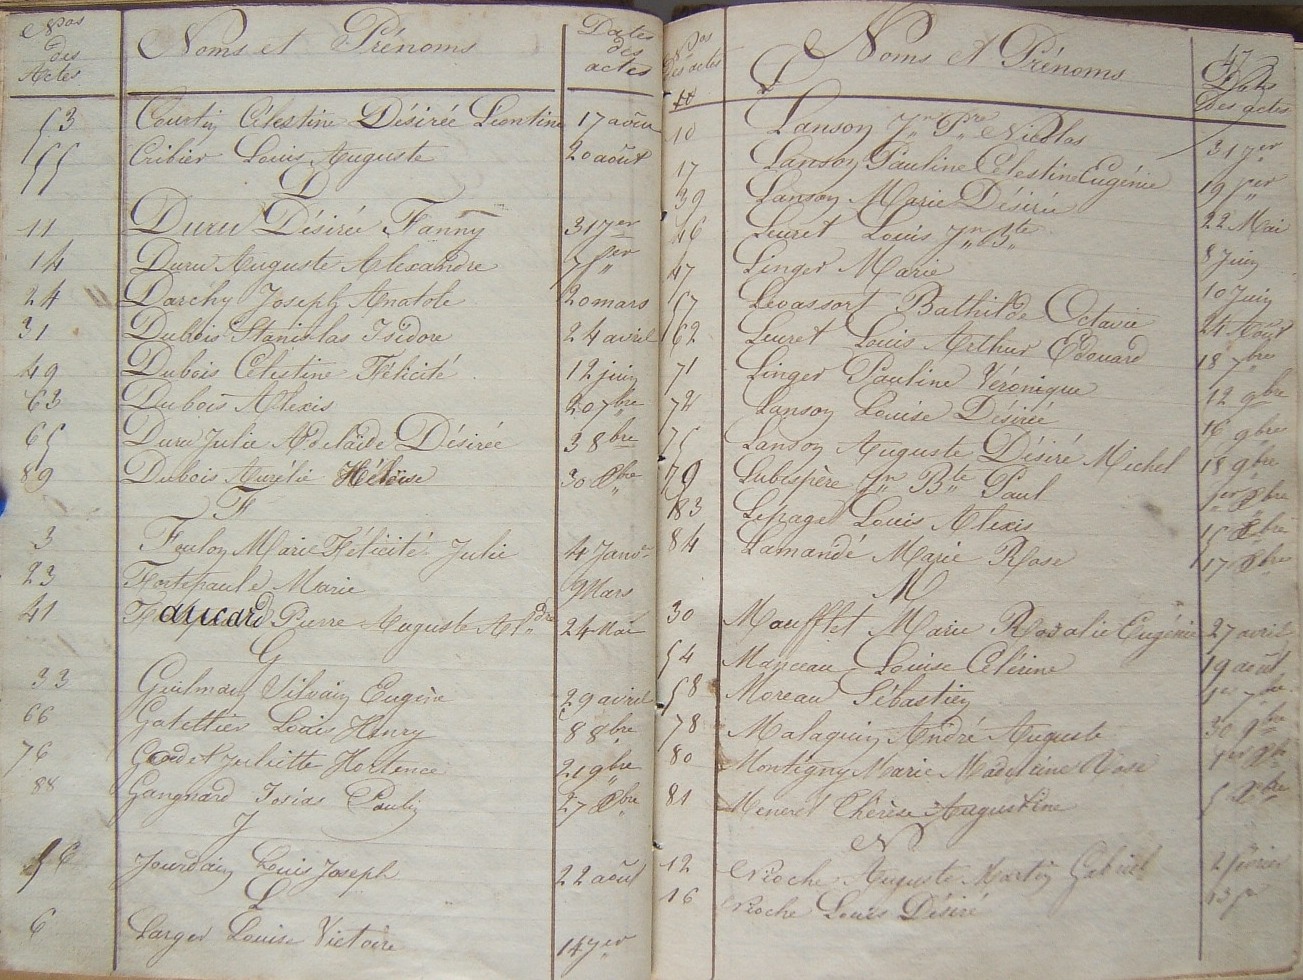 Nos des Actes Noms et Prénoms Dates des actes
53 Courtin Célestine Désirée Léontine 17 août
55 Cribier Louis Auguste 20 août
D
11 Duru Désiré Fanny 31 Jer
14 Duru Auguste Alexandre 7 fer
24 Darchy Joseph Anatole 20 mars
31 Dubois Stanislas Isidore 24 avril
49 Dubois Célestine Félicité 12 juin
63 Dubois Alexis 20 7bre
65 Duru Julie Adelaïde Désirée 3 8bre
89 Dubois Aurélie Héloïse 30 Xbre
F
3 Foulon Marie Félicité Julie 4 Janv
23 Fortepaule Marie 9 Mars
41 Faucard Pierre Auguste Aldre 24 Mai
G
33 Guilmain Silvain Eugène 29 avril
66 Gatellier Louis Henry 8 8bre
76 Godet Juliette Hortence 21 9bre
88 Gangnard Josias Paulin 27 Xbre
J
56 Jourdain Louis Joseph 22 août
L
6 Larger Louise Victoire 14 Jer
47
Nos Des actes Noms et Prénoms Dates Des actes
L
10 Lanson Jn Pre Nicolas 31 Jer
17 Lanson Pauline Célestine Eugénie 19 fer
39 Lanson Marie Désirée 22 Mai
46 Leuret Louis Jn Bte 8 Juin
47 Linger Marie 10 Juin
57 Levassort Bathilde Octavie 24 Août
62 Leuret Louis Arthur Edouard 18 7bre
71 Linger Pauline Véronique 12 9bre
74 Lanson Louise Désirée 16 9bre
75 Lanson Auguste Désiré Michel 18 9bre
79 Lubispère Jn Bte Paul 1er Xbre
83 Lepage Louis Alexis 15 Xbre
84 Lamandé Marie Rose 17 Xbre
M
30 Moufflet Marie Rosalie Eugénie 27 avril
54 Manceau Louise Célérine 19 août
58 Moreau Sébastien 1er 7bre
78 Malaquin André Auguste 30 9bre
80 Montigny Marie Madeleine Rose 1er Xbre
81 Meneret Thérèse Augustine 5 Xbre
N
12 Nioche Auguste Martin Gabriel 2 février
16 Nioche Louis Désiré 13 fr